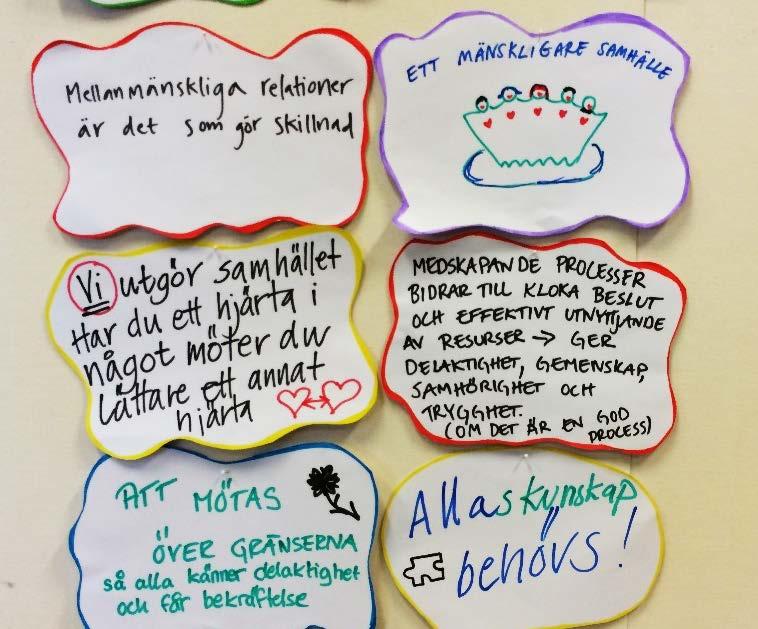 Mellanmänskliga relationer
är det som gör skillnad
ETT MÄNSKLIGARE SAMHÄLLE
Vi utgör samhället
Har du ett hjärta i
något möter du
lättare ett annat
hjärta
MEDSKAPANDE PROCESSER
BIDRAR TILL KLOKA BESLUT
OCH EFFEKTIVT UTNYTTJANDE
AV RESURSER → GER
DELAKTIGHET, GEMENSKAP,
SAMHÖRIGHET OCH
TRYGGHET.
(OM DET ÄR EN GOD
PROCESS)
ATT MÖTAS
ÖVER GRÄNSERNA
så alla känner delaktighet
och får bekräftelse
Allas kunskap
behövs!